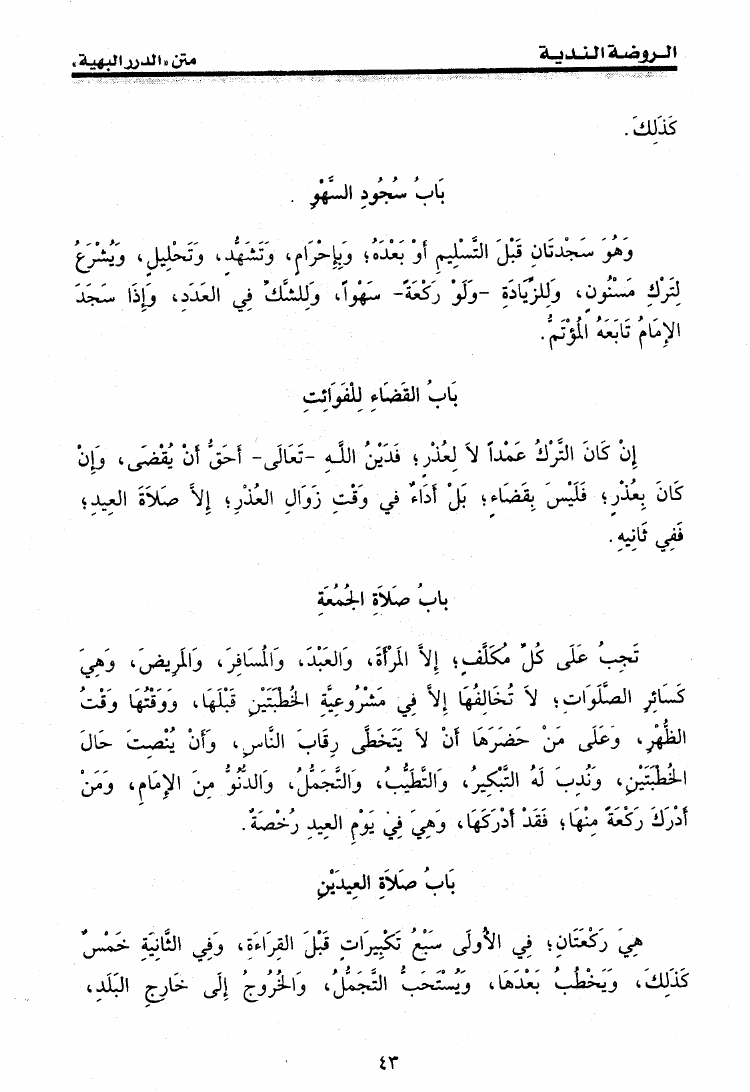 الـروضـة الـنـديـة
متن «الدرر البهية»
كَذَلِكَ .
بَابُ سُجُودِ السَّهْوِ .
وَهُوَ سَجْدَتَانِ قَبْلَ التَّسْلِيمِ أَوْ بَعْدَهُ؛ وَبِإِحْرَامٍ، وَتَشَهُّدٍ، وَتَحْلِيلٍ، وَيُشْرَعُ
لِتَرْكِ مَسْنُونٍ، وَلِلزِّيَادَةِ -وَلَوْ رَكْعَةً- سَهْواً، وَلِلشَّكِّ فِي العَدَدِ، وَإِذَا سَجَدَ
الإِمَامُ تَابَعَهُ المُؤْتَمُّ.
بَابُ القَضَاءِ لِلْفَوَائِتِ
إِنْ كَانَ التَّرْكُ عَمْداً لاَ لِعُذْرٍ؛ فَدَيْنُ اللَّـهِ -تَعَالَى- أَحَقُّ أَنْ يُقْضَى، وَإِنْ
كَانَ بِعُذْرٍ؛ فَلَيْسَ بِقَضَاءٍ؛ بَلْ أَدَاءٌ في وَقْتِ زَوَالِ العُذْرِ؛ إِلاَّ صَلاَةَ العِيدِ؛
فَفِي ثَانِيهِ.
بابُ صَلاَةِ الجُمُعَةِ
تَجِبُ عَلَى كُلِّ مُكَلَّفٍ؛ إِلاَّ المَرْأَةَ، وَالعَبْدَ، وَالمُسَافِرَ، وَالمَرِيضَ، وَهِيَ
كَسَائِرِ الصَّلَوَاتِ؛ لاَ تُخَالِفُهَا إِلاَّ فِي مَشْرُوعِيَّةِ الخُطْبَتَيْنِ قَبْلَهَا، وَوَقْتُهَا وَقْتُ
الظُّهْرِ، وَعَلَى مَنْ حَضَرَهَا أَنْ لاَ يَتَخَطَّى رِقَابَ النَّاسِ، وَأَنْ يُنْصِتَ حَالَ
الخُطْبَتَيْنِ، وَنُدِبَ لَهُ التَّبْكِيرُ، وَالتَّطَيُّبُ، وَالتَّجَمُّلُ، وَالدُّنُوُّ مِنَ الإِمَامِ، وَمَنْ
أَدْرَكَ رَكْعَةً مِنْهَا؛ فَقَدْ أَدْرَكَهَا، وَهِيَ فِي يَوْمِ العِيدِ رُخْصَةٌ.
بَابُ صَلاَةِ العِيدَيْنِ
هِيَ رَكْعَتَانِ؛ فِي الأُولَى سَبْعُ تَكْبِيرَاتٍ قَبْلَ القِرَاءَةِ، وَفِي الثَّانِيَةِ خَمْسٌ
كَذَلِكَ، وَيَخْطُبُ بَعْدَهَا، وَيُسْتَحَبُّ التَّجَمُّلُ، وَالخُرُوجُ إِلَى خَارِجِ البَلَدِ،
٤٣